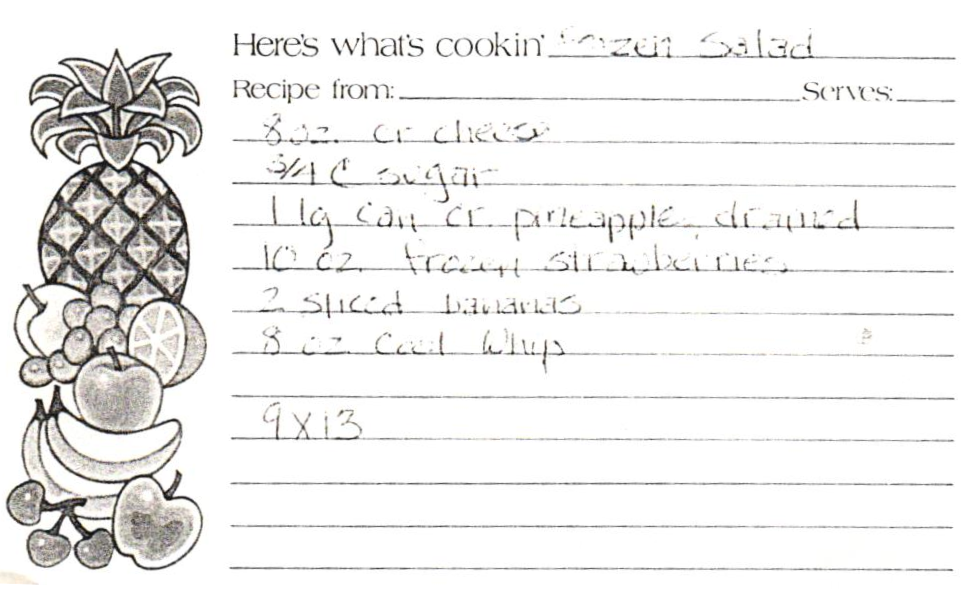 Here's what's cookin' Frozen Salad
Recipe from: Serves:
8 oz. cr cheese
3/4 C sugar
1 lg can cr pineapple, drained
10 oz. frozen strawberries
2 sliced bananas
8 oz Cool Whip
9X13